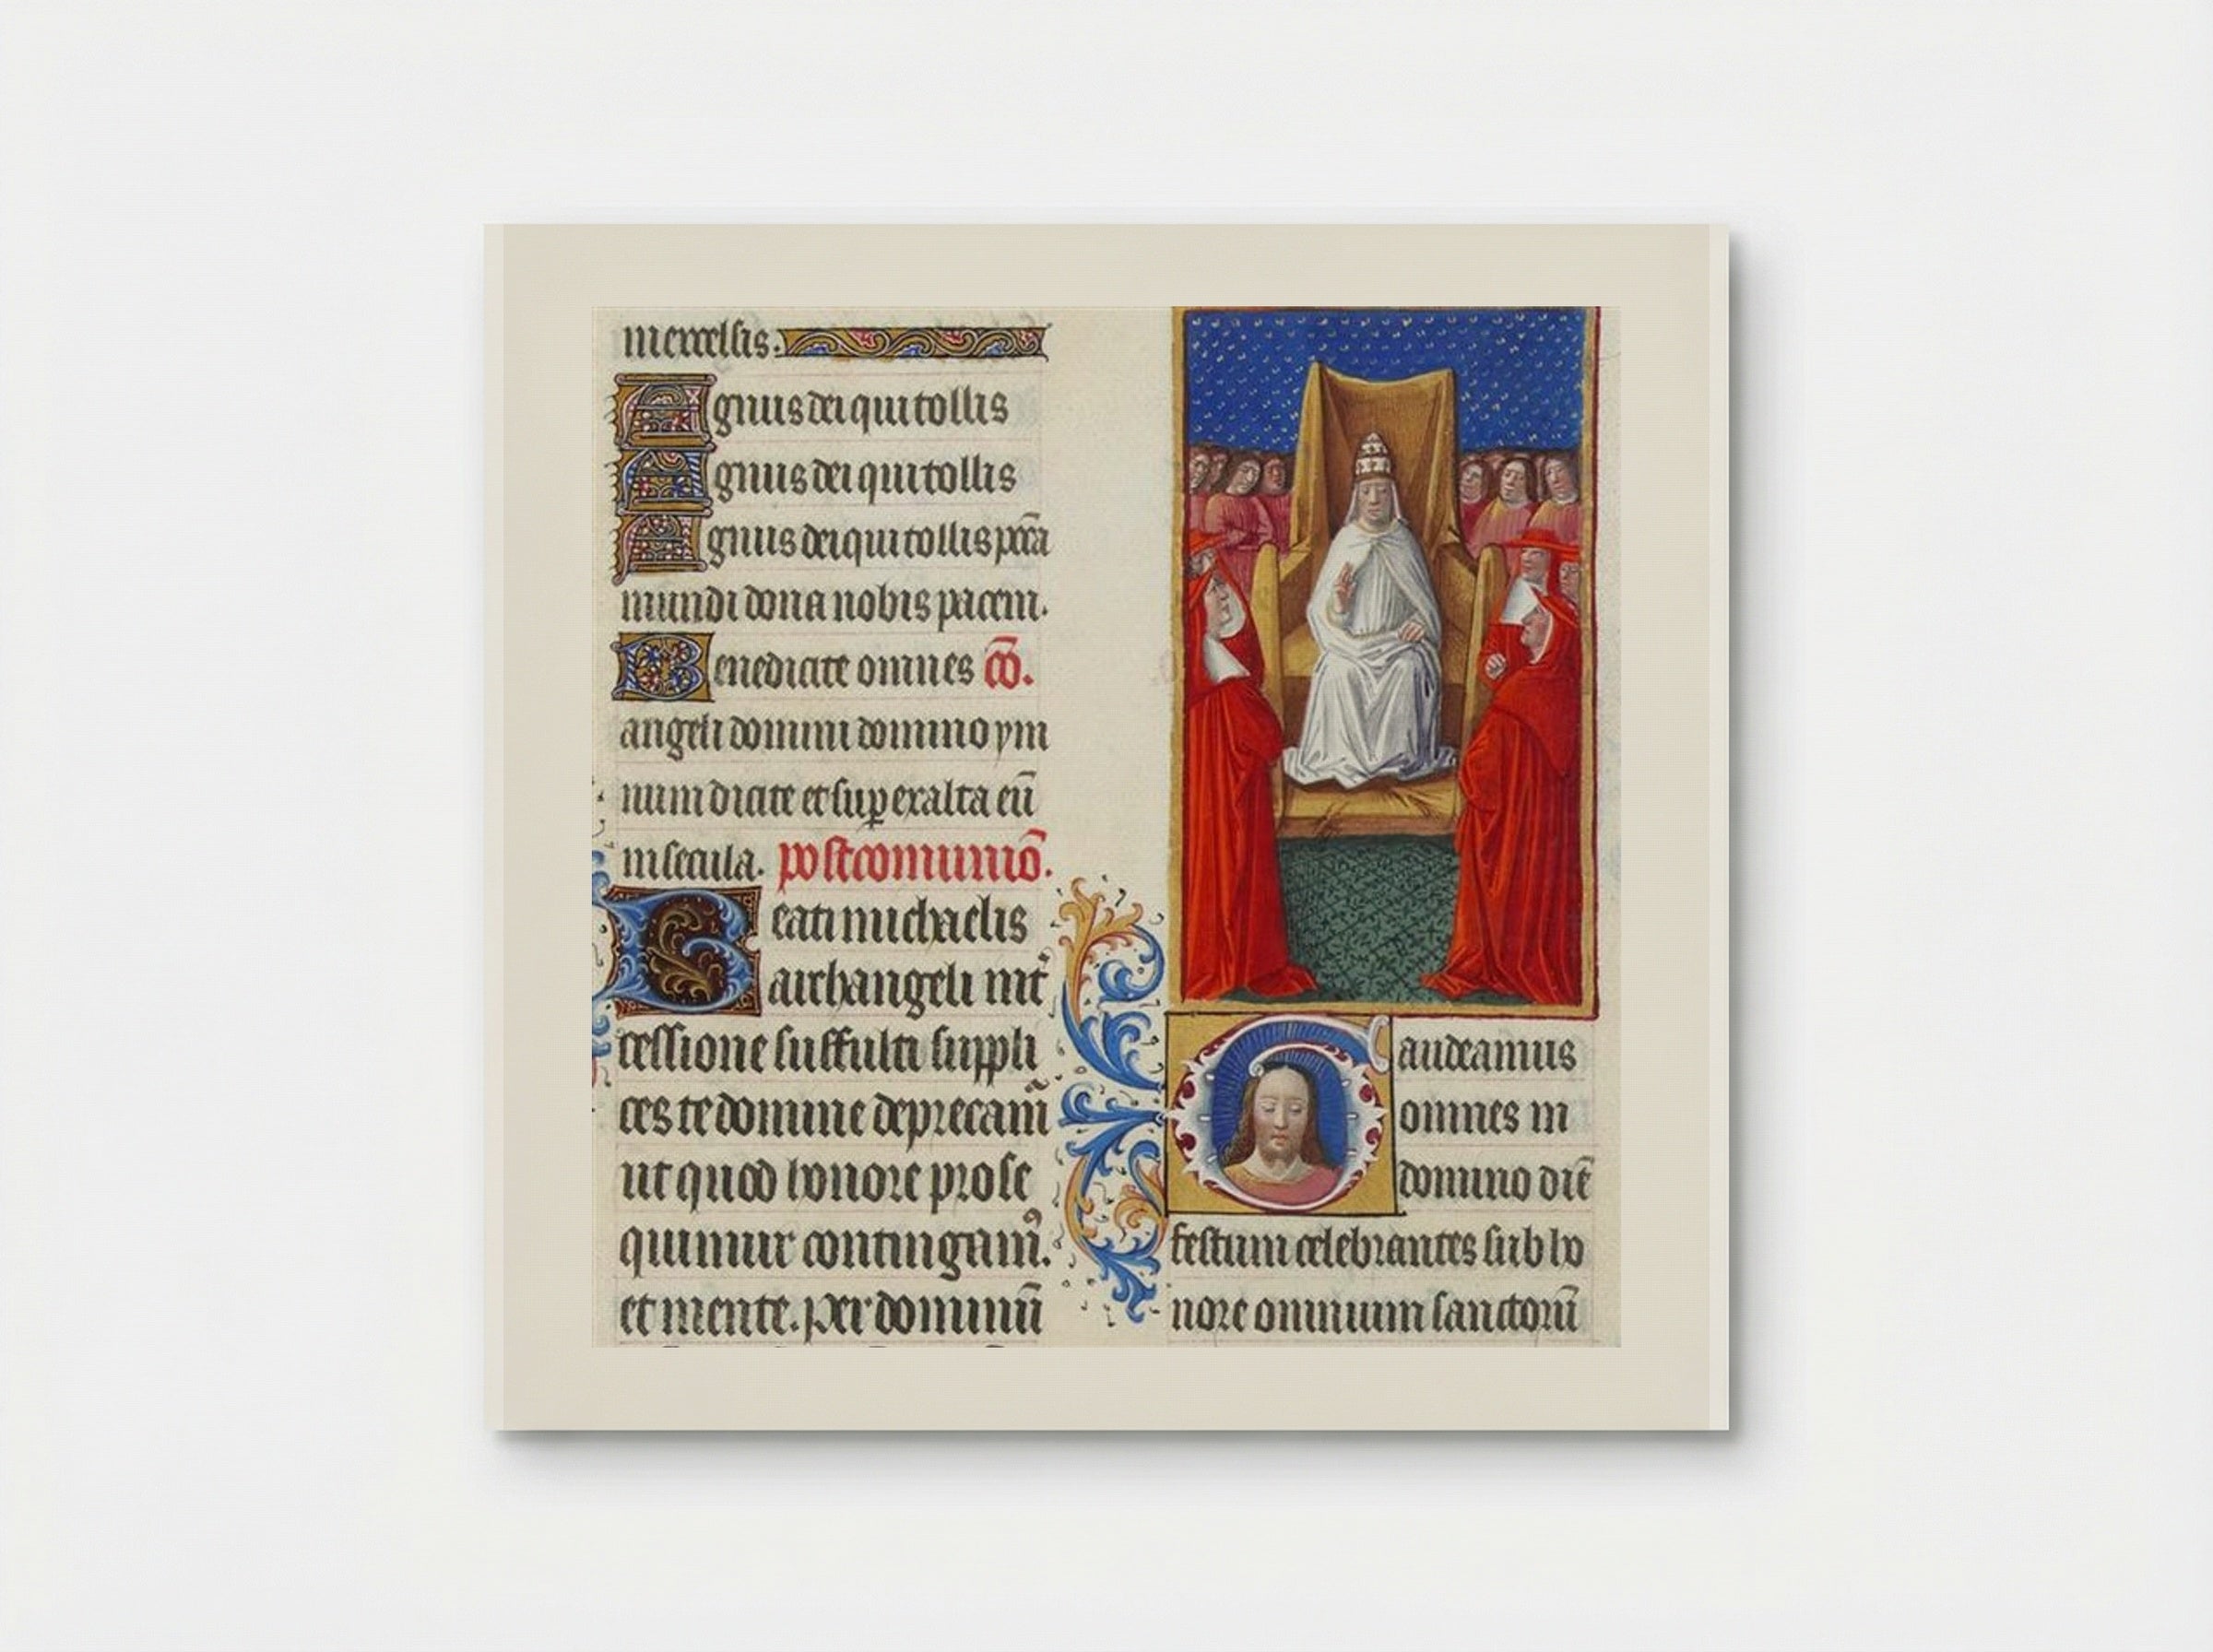 in excelsis.
Agnus dei qui tollis
Agnus dei qui tollis
Agnus dei qui tollis pcca
mundi dona nobis pacem.
Benedicite omnes cō.
angeli domini domino ym
num dicite et suꝑexalta eū
in secula. postcomuniō.
Beati michaelis
archangeli int̄
cessione suffulti suppli
ces te domine deprecam̄
ut quod honore prose
quimur contingam᷒.
et mente. per dominū
Gaudeamus
omnes in
domino diē
festum celebrantes sub ho
nore omnium sanctorū